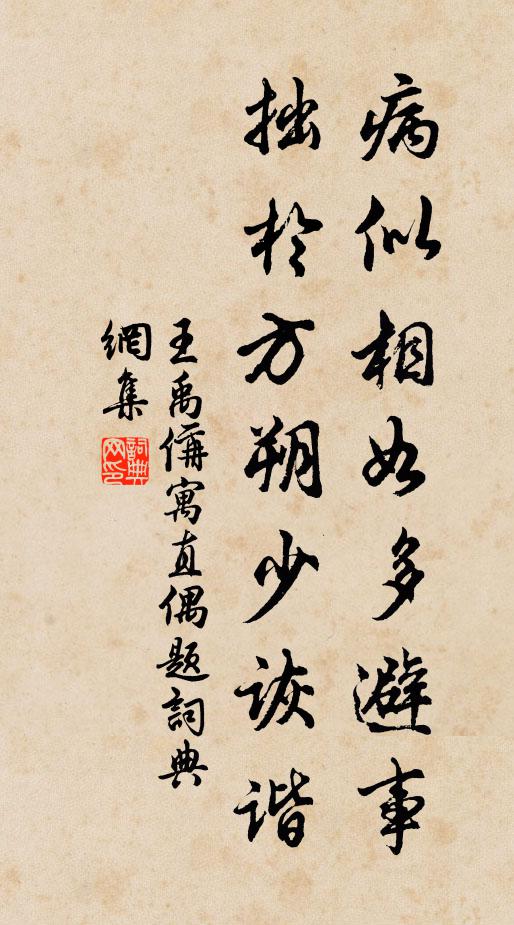 病似相如多避事
拙於方朔少诙谐
王禹偁寓直偶题詞典
網集
詞典
网印